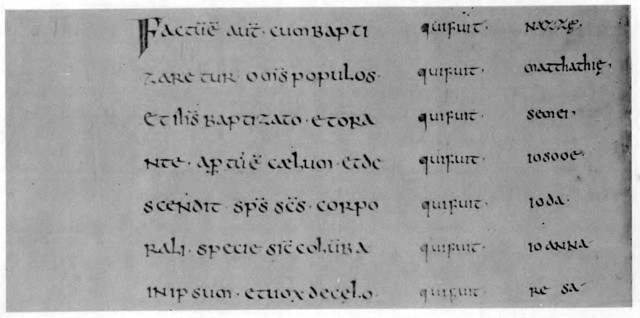 Factū ē aut̄ · cum bapti quifuit · nazzę ·
zaretur om̄s populos · quifuit · matthathię ·
et ih̄s baptizato · et ora quifuit · semei ·
nte · aptū ē cælum · et de quifuit · iosooe ·
scendit · sp̄s sc̄s · corpo quifuit · ioda ·
rali · specie sic̄ colūba quifuit · ioanna
in ipsum · et uox de cęlo · quifuit · re sa ·